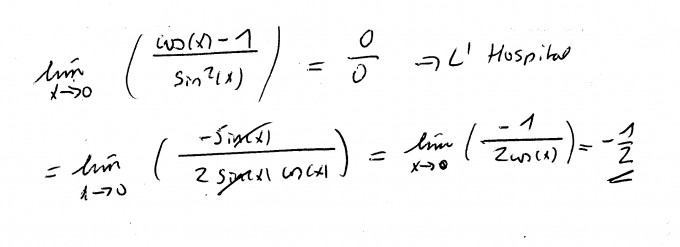 lim x→0 ( (cos(x) - 1) / sin²(x) ) = 0/0 → L' Hospital
= lim x→0 ( (-sin(x)) / (2 sin(x) cos(x)) ) = lim x→0 ( -1 / (2cos(x)) ) = -1/2